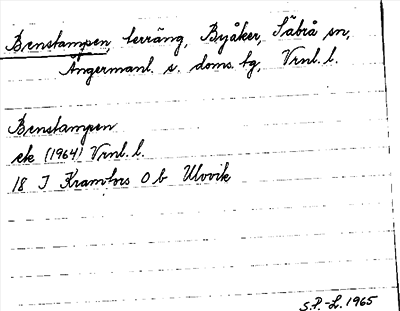 Benstampen, terräng, Byåker, Säbrå sn,
Ångermanl. s. doms. tg, Vrnl. l.
Benstampen
ek (1964) Vrnl. l.
18 I Kramfors 0 b Ulvvik
S.P.-L. 1965